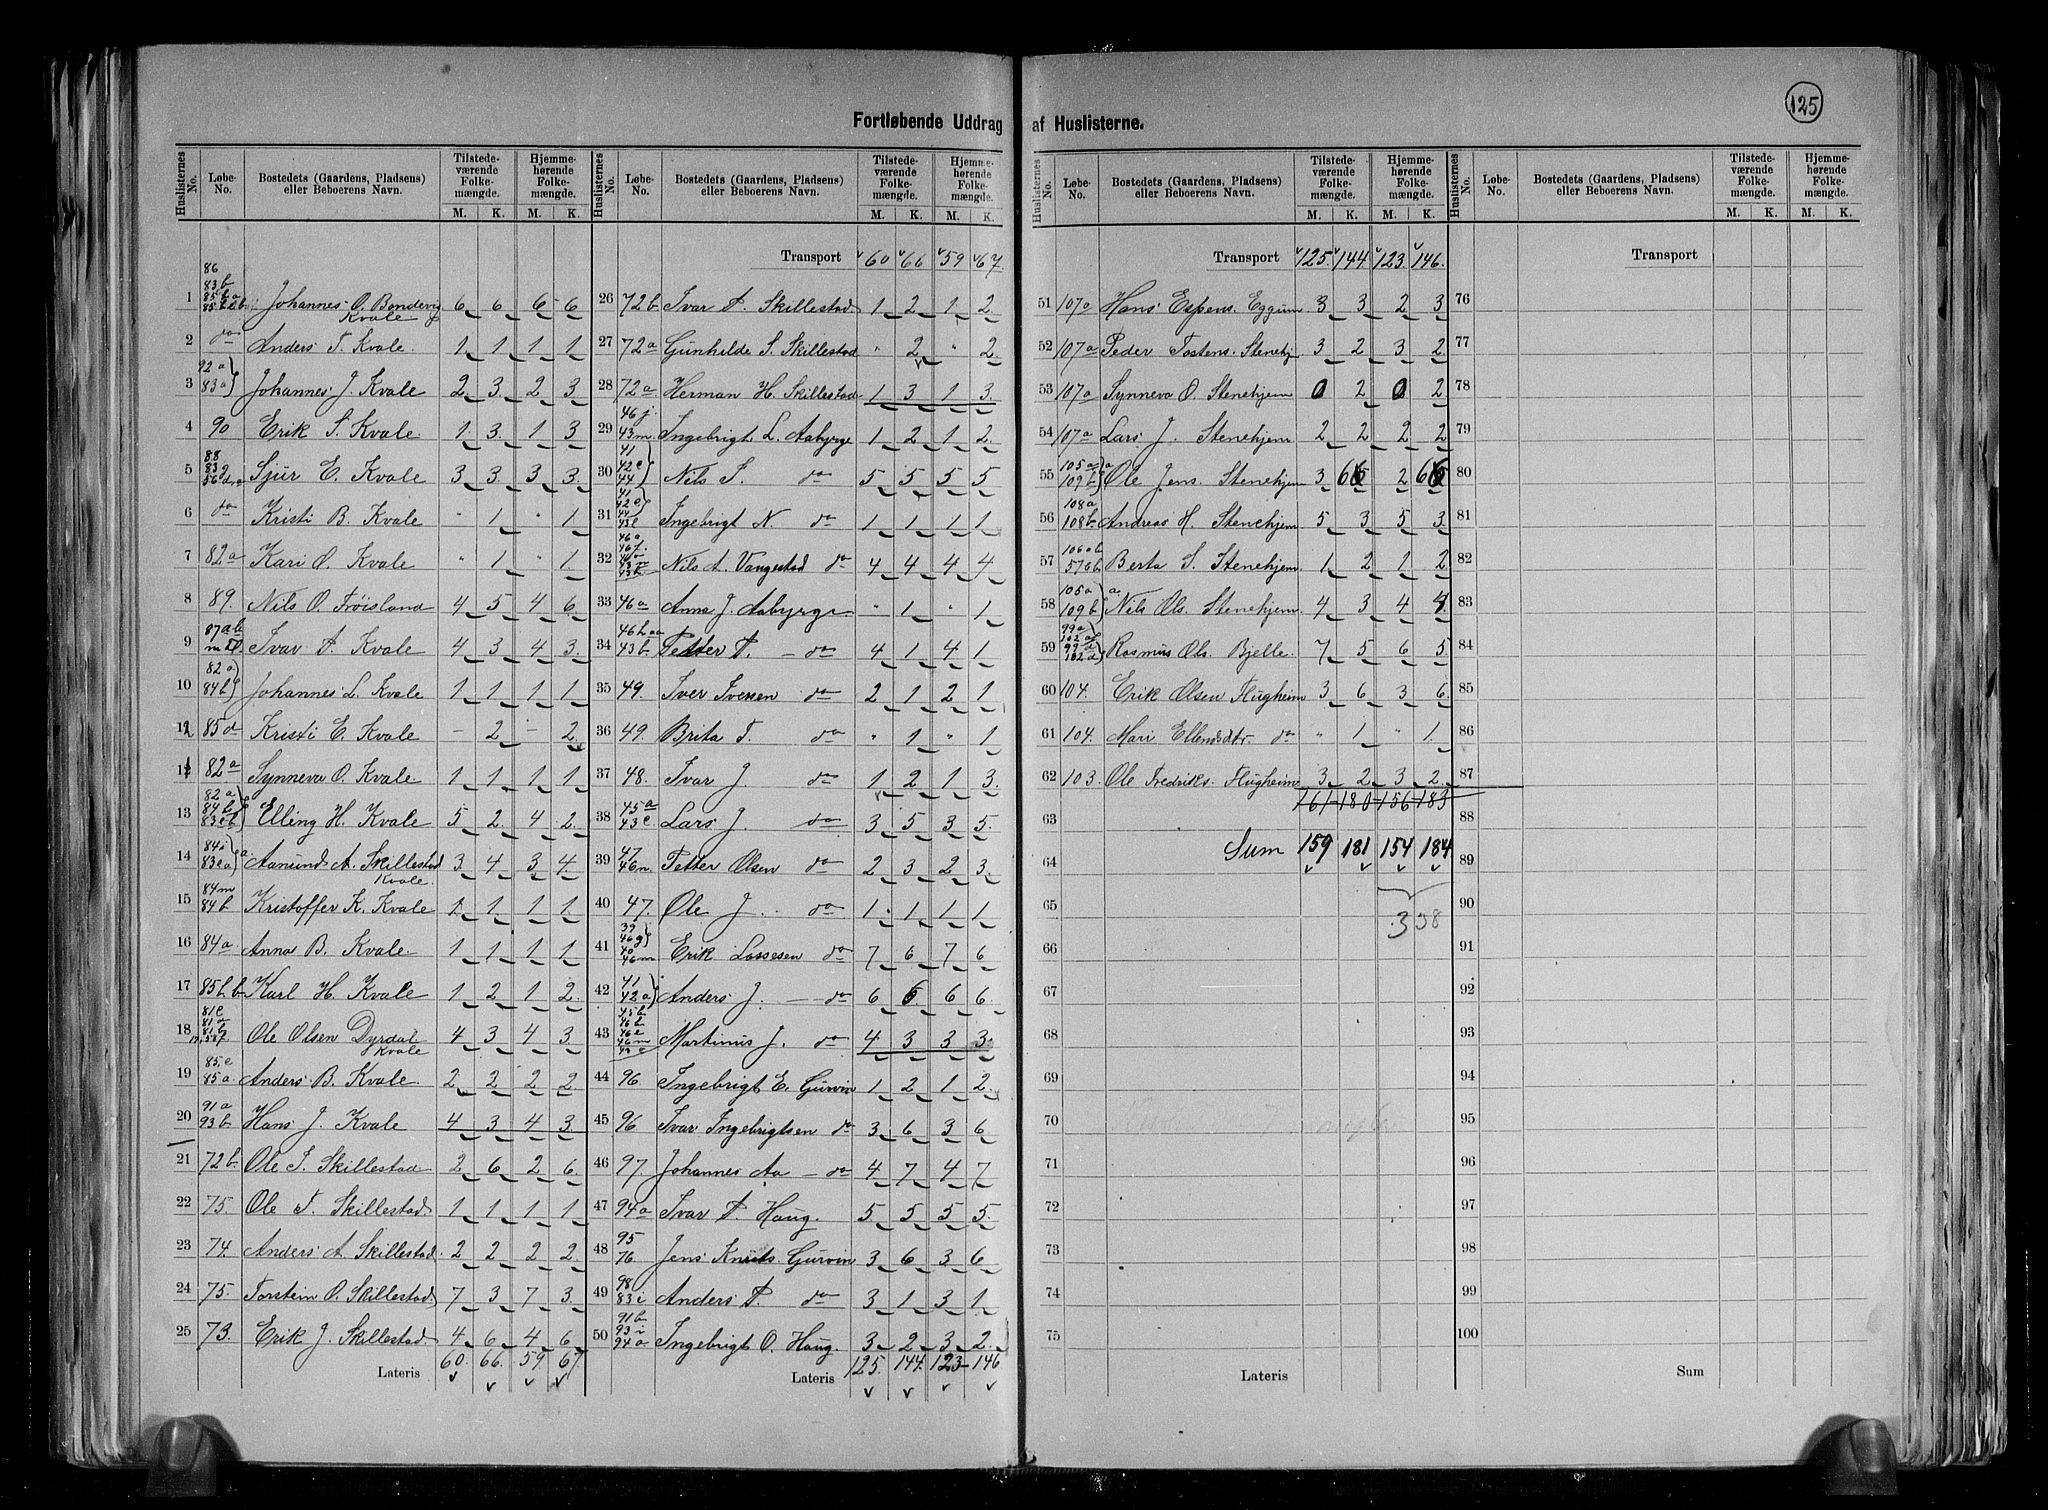 125
Fortløbende Uddrag af Huslisterne.
Huslisternes No. Løbe-No. Bostedets (Gaardens, Pladsens) eller Beboerens Navn. Tilstedeværende Folkemængde. M. K. Hjemmehørende Folkemængde. M. K.
86
83 b
85 b a
1 Johannes O. Bondevig 6 6 6 6
Kvale
2 do Anders T. Kvale 1 1 1 1
92 a
3 83 a Johannes J. Kvale 2 3 2 3
4 90 Erik S. Kvale 1 3 1 3
88
5 Sjur E. Kvale 3 3 3 3
6 do Kristi B. Kvale " 1 " 1
7 82 a Kari O. Kvale " 1 " 1
8 89. Nils O. Frøisland 4 5 4 6
87 a b
9 Ivar A. Kvale 4 3 4 3
82 a
10 84 b Johannes L. Kvale 1 1 1 1
12 85 d Kristi E. Kvale - 2 - 2
11 82 a Synneva O. Kvale 1 1 1 1
82 a
84 b
13 Elling H. Kvale 5 2 4 2
84 i
14 83 e a Aamund A. Skillestad 3 4 3 4
Kvale
84 m
15 84 b Kristoffer K. Kvale 1 1 1 1
16 84 a Anna B. Kvale 1 1 1 1
17 85 b b Karl H. Kvale 1 2 1 2
81 e
81 a
81 b
18 Ole Olsen Dyrdal 4 3 4 3
Kvale
85. e
19 85 a Anders B. Kvale 2 2 2 2
91 a
20 93 b Hans J. Kvale 4 3 4 3
21 72 b Ole S. Skillestad 2 6 2 6
22 75. Ole T. Skillestad 1 1 1 1
23 74. Anders A. Skillestad 2 2 2 2
24 75. Torstein O. Skillestad 7 3 7 3
25 73. Erik J. Skillestad 4 6 4 6
Lateris 60. 66. 59. 67
Huslisternes No. Løbe-No. Bostedets (Gaardens, Pladsens) eller Beboerens Navn. Tilstedeværende Folkemængde. M. K. Hjemmehørende Folkemængde. M. K.
Transport 60 66 59 67.
26 72 b Ivar A. Skillestad 1 2 1 2
27 72 a Gunhilde S. Skillestad " 2 " 2
28 72 a Herman H. Skillestad 1 3 1 3
46 j
29 43 m Ingebrigt L. Aabyrge 1 2 1 2
41
42 e
30 44 Nils S. do 5 5 5 5
41
42 e
44
31 43 l Ingebrigt N. do 1 1 1 1
46 a
32 43 b Nils A. Vangestad do 4 4 4 4
33 46 a Anna J. Aabyrge " 1 " 1
46 b
34 43 b Petter A. do 4 1 4 1
35 49. Iver Iversen do 2 1 2 1
36 49. Brita T. do " 1 " 1
37 48. Ivar J. do 1 2 1 3
45 a
38 43 e Lars J. do 3 5 3 5
47
39 46 n. Petter Olsen do 2 3 2 3
40 47. Ole J. do 1 1 1 1
39
46 g
41 46 m Erik Lassesen do 7 6 7 6
41
42 42 a Anders J. do 6 6 6 6
45 b
46 b
46 e
43 46 m Martinus J. do 4 3 3 3
44 96 Ingebrigt E. Gurvin 1 2 1 2
45 96 Ivar Ingebrigtsen do 3 6 3 6
46 97. Johannes Aa do 4 7 4 7
47 94 a Ivar A. Haug. 5 5 5 5
95
48 76 Jens Knuts. Gurvin 3 6 3 6
98
49 83 i Anders A. do 3 1 3 1
91 b
93 i
50 94 a Ingebrigt O. Haug. 3 2 3 2
Lateris 125. 144. 123 146
Huslisternes No. Løbe-No. Bostedets (Gaardens, Pladsens) eller Beboerens Navn. Tilstedeværende Folkemængde. M. K. Hjemmehørende Folkemængde. M. K.
Transport 125. 144 123. 146.
51 107 a Hans Espens. Eggum 3 3 2 3
52 107 a Peder Tostens. Stenehj 3 2 3 2
53 107 a Synneva O. Stenehjem 0 2 0 2
54 107 a Lars J. Stenehjem 2 2 2 2
105 a
55 109 b Ole Jens. Stenehjem 3 6 2 6
108 a
56 108 b Andreas H. Stenehjem 5 3 5 3
106 a b
57 Berta S. Stenehjem 1 2 1 2
105 a
58 109 b Nils Ols. Stenehjem 4 3 4 4
99 a
59 102 d Rasmus Ols. Bjelle. 7 5 6 5
60 104. Erik Olsen Flugheim 3 6 3 6
61 104. Mari Ellendsdtr. do " 1 " 1
62 103 Ole Fredriks. Flugheim 3 2 3 2
161 180 156 183
63
64 Sum 159 181 154 184
65 338
66
67
68
69
70
71
72
73
74
75
Lateris
Huslisternes No. Løbe-No. Bostedets (Gaardens, Pladsens) eller Beboerens Navn. Tilstedeværende Folkemængde. M. K. Hjemmehørende Folkemængde. M. K.
Transport
76
77
78
79
80
81
82
83
84
85
86
87
88
89
90
91
92
93
94
95
96
97
98
99
100
Sum